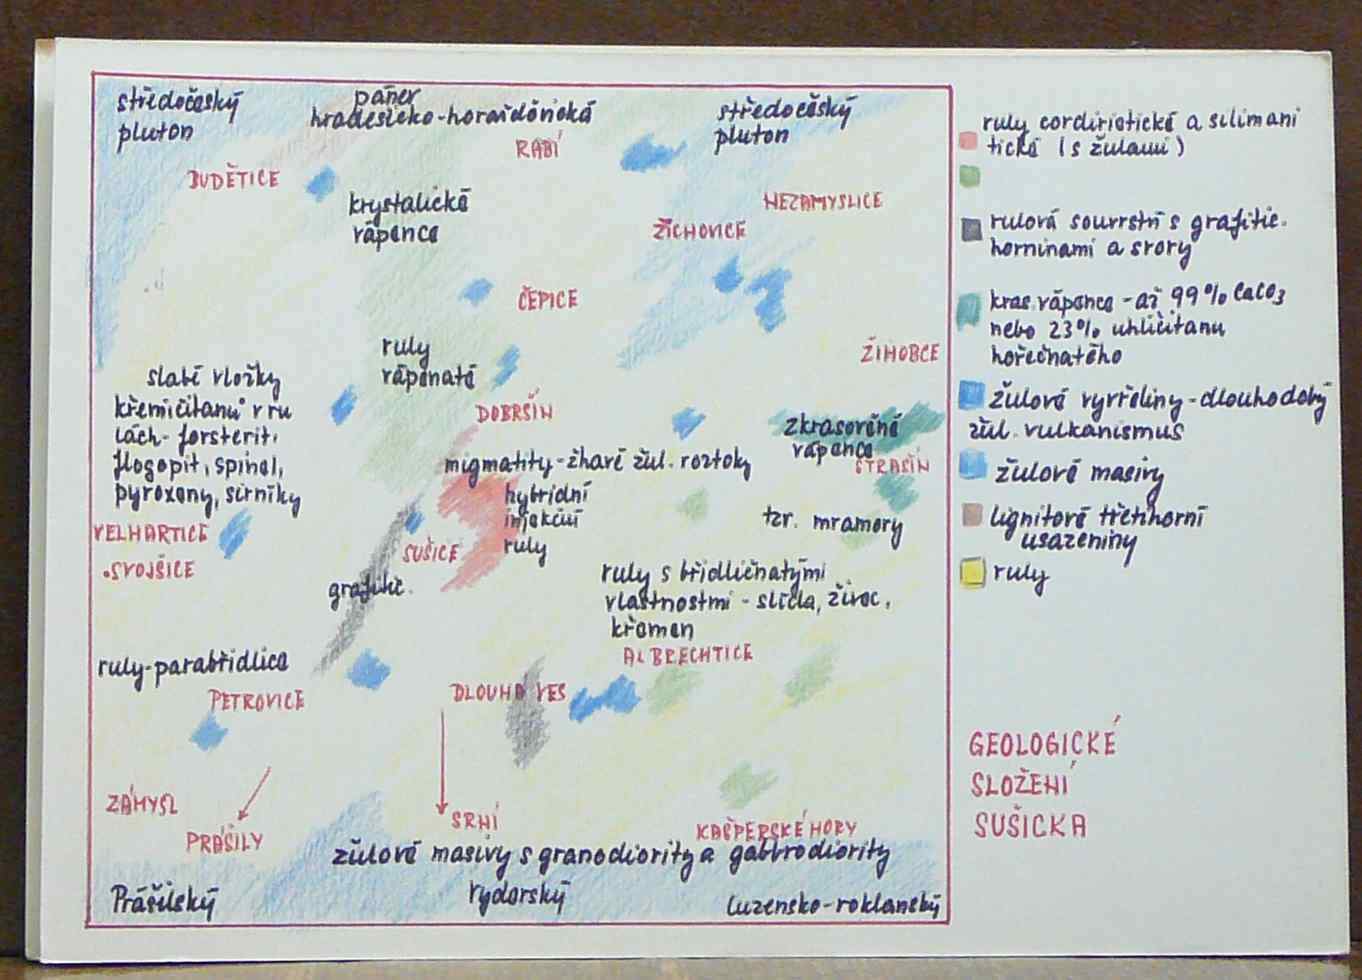 středočeský
pluton
pánev
hradešicko-horažďovická
středočeský
pluton
RABÍ
BUDĚTICE
krystalické
vápence
NEZAMYSLICE
ŽICHOVICE
ČEPICE
ruly
vápenaté
ŽIHOBCE
slabé vložky
křemičitanů v ru
lách - forsterit,
flogopit, spinel,
pyroxeny, sirníky
DOBRŠÍN
zkrasověné
vápence
STRAŠÍN
migmatity - žhavé žul. roztoky
hybridní
injekční
ruly
tzv. mramory
VELHARTICE
SVOJŠICE
SUŠICE
grafitic.
ruly s břidličnatými
vlastnostmi - slída, živec,
křemen
ALBRECHTICE
ruly-parabřidlice
PETROVICE
DLOUHÁ VES
ZÁMYŠL
PRÁŠILY
SRNÍ
KAŠPERSKÉ HORY
žulové masivy s granodiority a gabbrodiority
Prášilský
Vyderský
Luzensko-roklanský
ruly cordieritické a silimani
tické (s žulami)
rulová souvrství s grafitic.
horninami a svory
kras. vápence - až 99% CaCO3
nebo 23% uhličitanu
hořečnatého
žulové vyvřeliny - dlouhodobý
žul. vulkanismus
žulové masivy
lignitové třetihorní
usazeniny
ruly
GEOLOGICKÉ
SLOŽENÍ
SUŠICKA